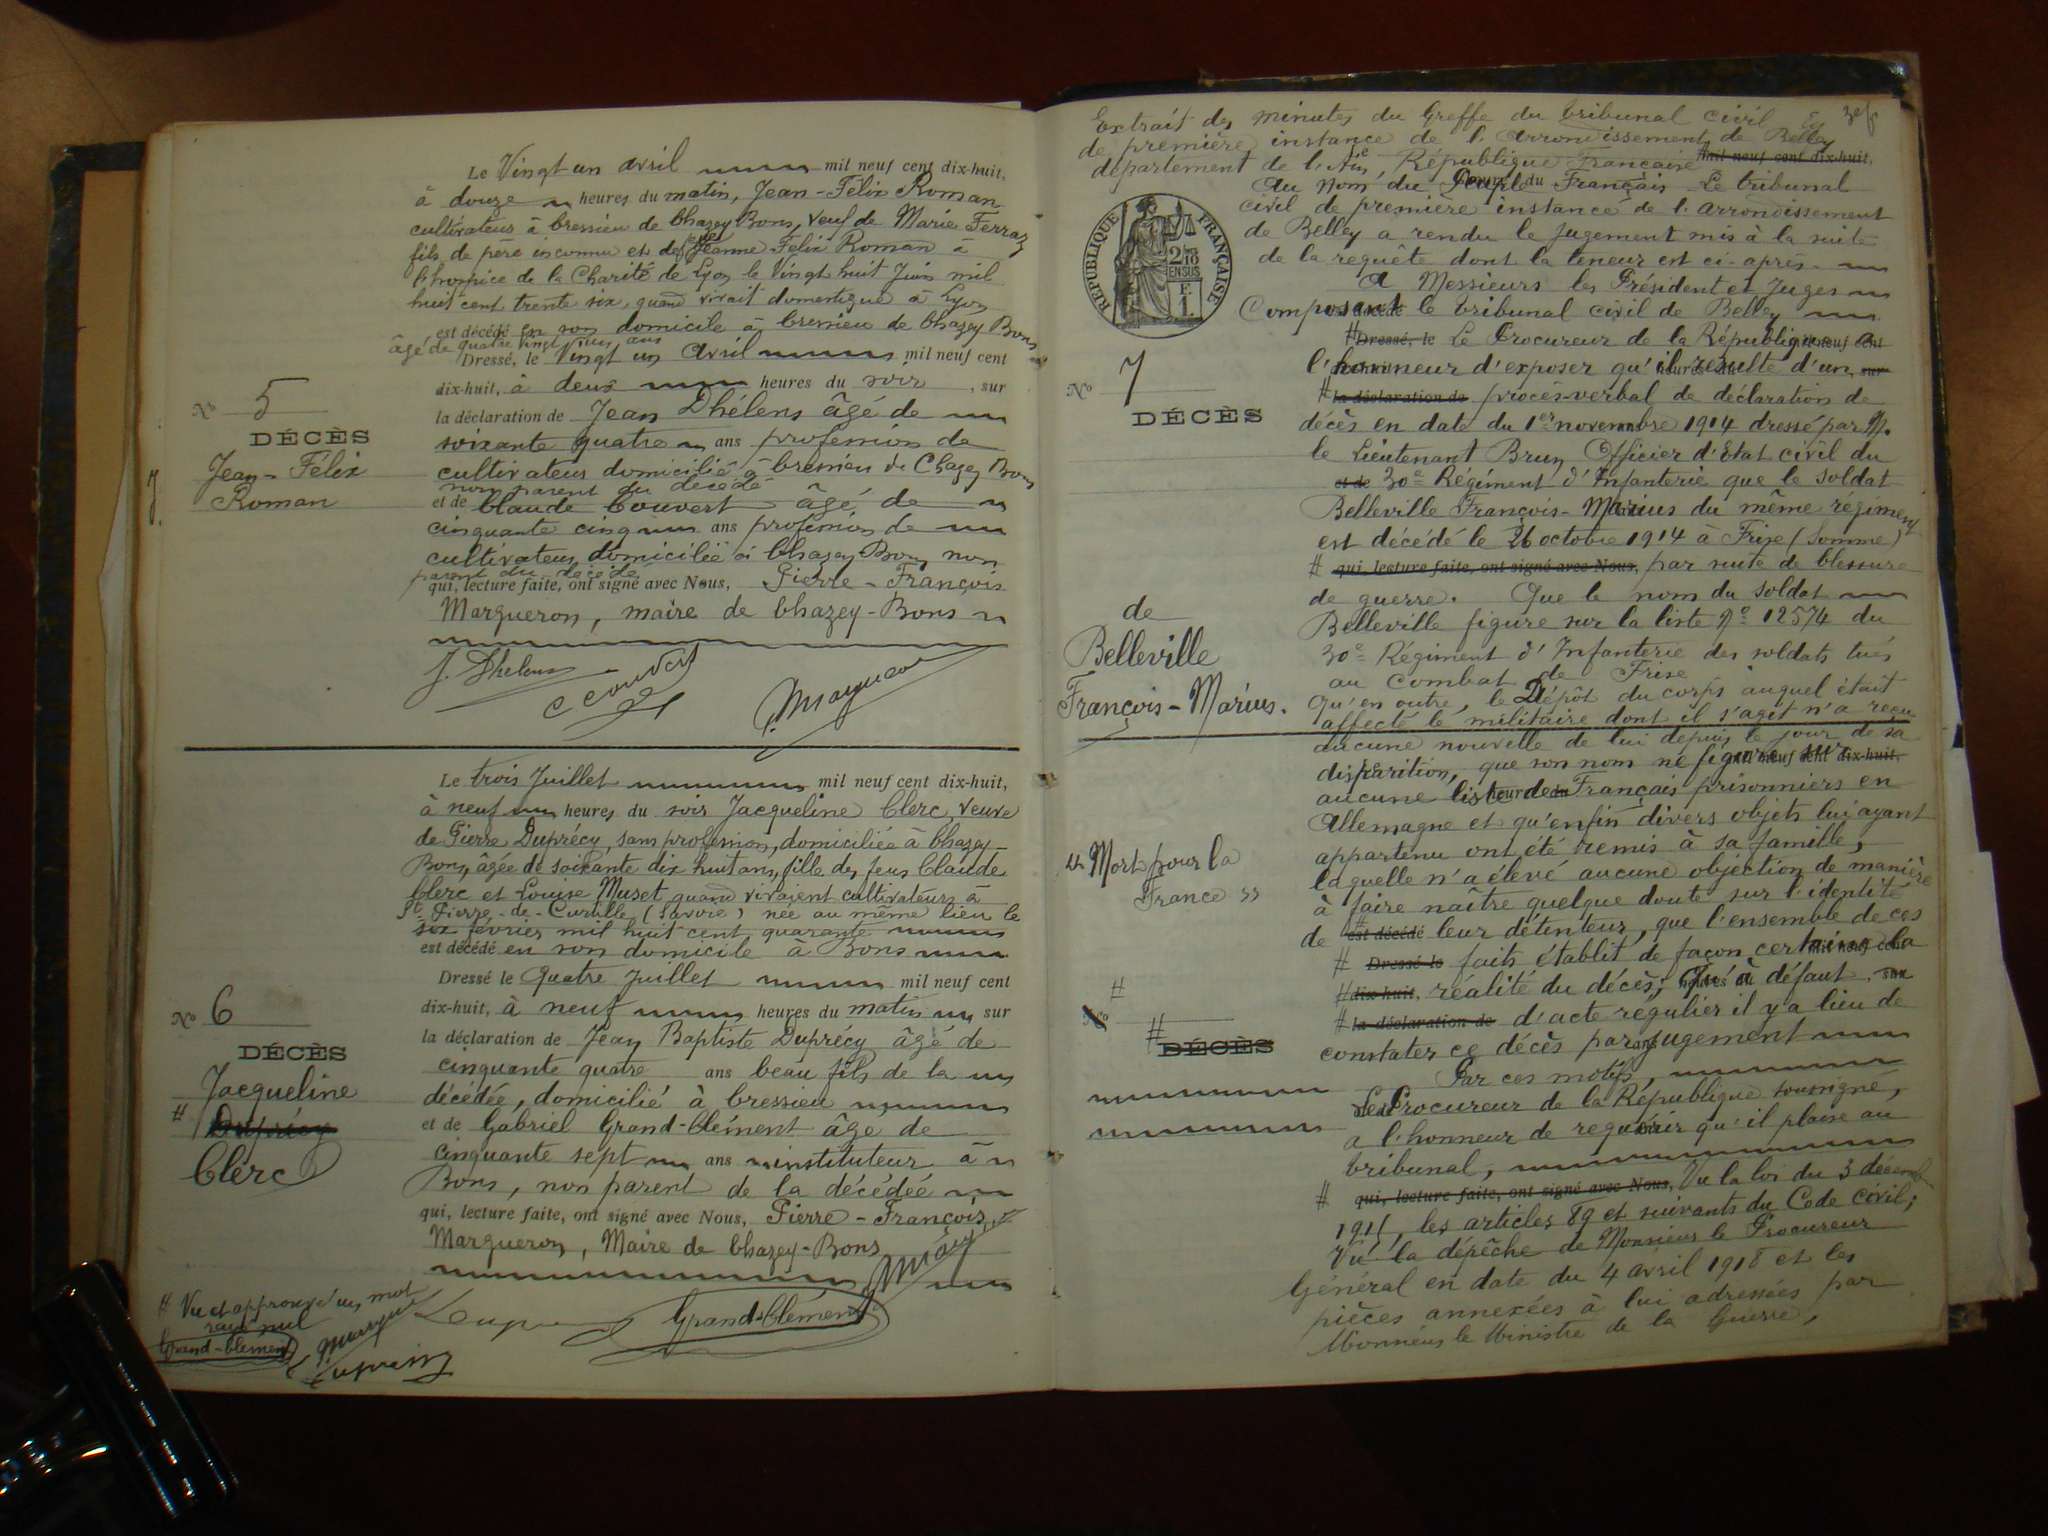 Le Vingt un avril mil neuf cent dix-huit,
à douze heures du matin, Jean-Félix Roman
cultivateur à Cressieu de Chazey Bons, veuf de Marie Ferraz
fils de père inconnu et de Jeanne Félix Roman à
l'hospice de la Charité de Lyon le Vingt huit Juin mil
huit cent trente six, quand vivait domestique à Lyon
est décédé en son domicile à Cressieu de Chazey Bons
âgé de quatre vingt un ans
Dressé, le Vingt un Avril mil neuf cent
dix-huit, à deux heures du soir, sur
la déclaration de Jean Dhélens âgé de
soixante quatre ans profession de
cultivateur domicilié à Cressieu de Chazey Bons
non parent du décédé
et de Claude Couvert âgé de
cinquante cinq ans profession de
cultivateur, domicilié à Chazey Bons, non
parent du décédé
qui, lecture faite, ont signé avec Nous, Pierre-François
Margueron, maire de Chazey-Bons
J. Dhelens
C Couvert
Margueron
No 5
DÉCÈS
Jean-Félix
Roman
Le trois Juillet mil neuf cent dix-huit,
à neuf heures du soir Jacqueline Clerc, veuve
de Pierre Duprécy, sans profession, domiciliée à Chazey-
Bons, âgée de soixante dix huit ans, fille des feus Claude
Clerc et Louise Muset quand vivaient cultivateurs à
St Pierre-de-Curtille (Savoie) née au même lieu le
six février mil huit cent quarante
est décédé en son domicile à Bons
Dressé le Quatre Juillet mil neuf cent
dix-huit, à neuf heures du matin sur
la déclaration de Jean Baptiste Duprécy âgé de
cinquante quatre ans beau fils de la
décédée, domicilié à Cressieu
et de Gabriel Grand-Clément âgé de
cinquante sept ans instituteur à
Bons, non parent de la décédée
qui, lecture faite, ont signé avec Nous, Pierre-François
Margueron, Maire de Chazey-Bons
Grand-Clément
No 6
DÉCÈS
Jacqueline
# Duprécy
Clerc
# Vu et approuvé un mot
rayé nul
Grand-Clément
Extrait des minutes du Greffe du tribunal civil
de première instance de l'arrondissement de Belley
département de l'Ain, République Française mil neuf cent dix-huit,
Au nom du Peuple Français Le tribunal
civil de première instance de l'arrondissement
de Belley a rendu le jugement mis à la suite
de la requête dont la teneur est ci-après
A Messieurs les Président et Juges
Composant le tribunal civil de Belley
# Dressé, le Le Procureur de la République a
l'honneur d'exposer qu'il résulte d'un sur
# la déclaration de procès-verbal de déclaration de
décès en date du 1er novembre 1914 dressé par M.
le Lieutenant Brun Officier d'Etat civil du
et de 30e Régiment d'Infanterie que le soldat
Belleville François-Marius du même régiment
est décédé le 26 octobre 1914 à Frise (Somme)
# qui, lecture faite, ont signé avec Nous, par suite de blessure
de guerre. Que le nom du soldat
Belleville figure sur la liste No 12574 du
30e Régiment d'Infanterie des soldats tués
au combat de Frise
Qu'en outre, le Dépôt du corps auquel était
affecté le militaire dont il s'agit n'a reçu
aucune nouvelle de lui depuis le jour de sa
disparition, que son nom ne figure sur mil neuf cent dix-huit,
aucune liste de Français prisonniers en
Allemagne et qu'enfin divers objets lui ayant
appartenu ont été remis à sa famille,
laquelle n'a élevé aucune objection de manière
à faire naître quelque doute sur l'identité
de est décédé leur détenteur, que l'ensemble de ces
# Dressé le faits établit de façon certaine la
# dix-huit, réalité du décès; Qu'à défaut, sur
# la déclaration de d'acte régulier il y a lieu de
constater ce décès par jugement
Par ces motifs,
Le Procureur de la République soussigné,
a l'honneur de requérir qu'il plaise au
tribunal,
# qui, lecture faite, ont signé avec Nous, Vu la loi du 3 décembre
1915, les articles 89 et suivants du Code civil;
Vu la dépêche de Monsieur le Procureur
Général en date du 4 avril 1918 et les
pièces annexées à lui adressées par
Monsieur le Ministre de la Guerre,
RÉPUBLIQUE FRANÇAISE
2/10 EN SUS
F. 1.
No 7
DÉCÈS
de
Belleville
François-Marius.
"Mort pour la
France"
#
No
# DÉCÈS